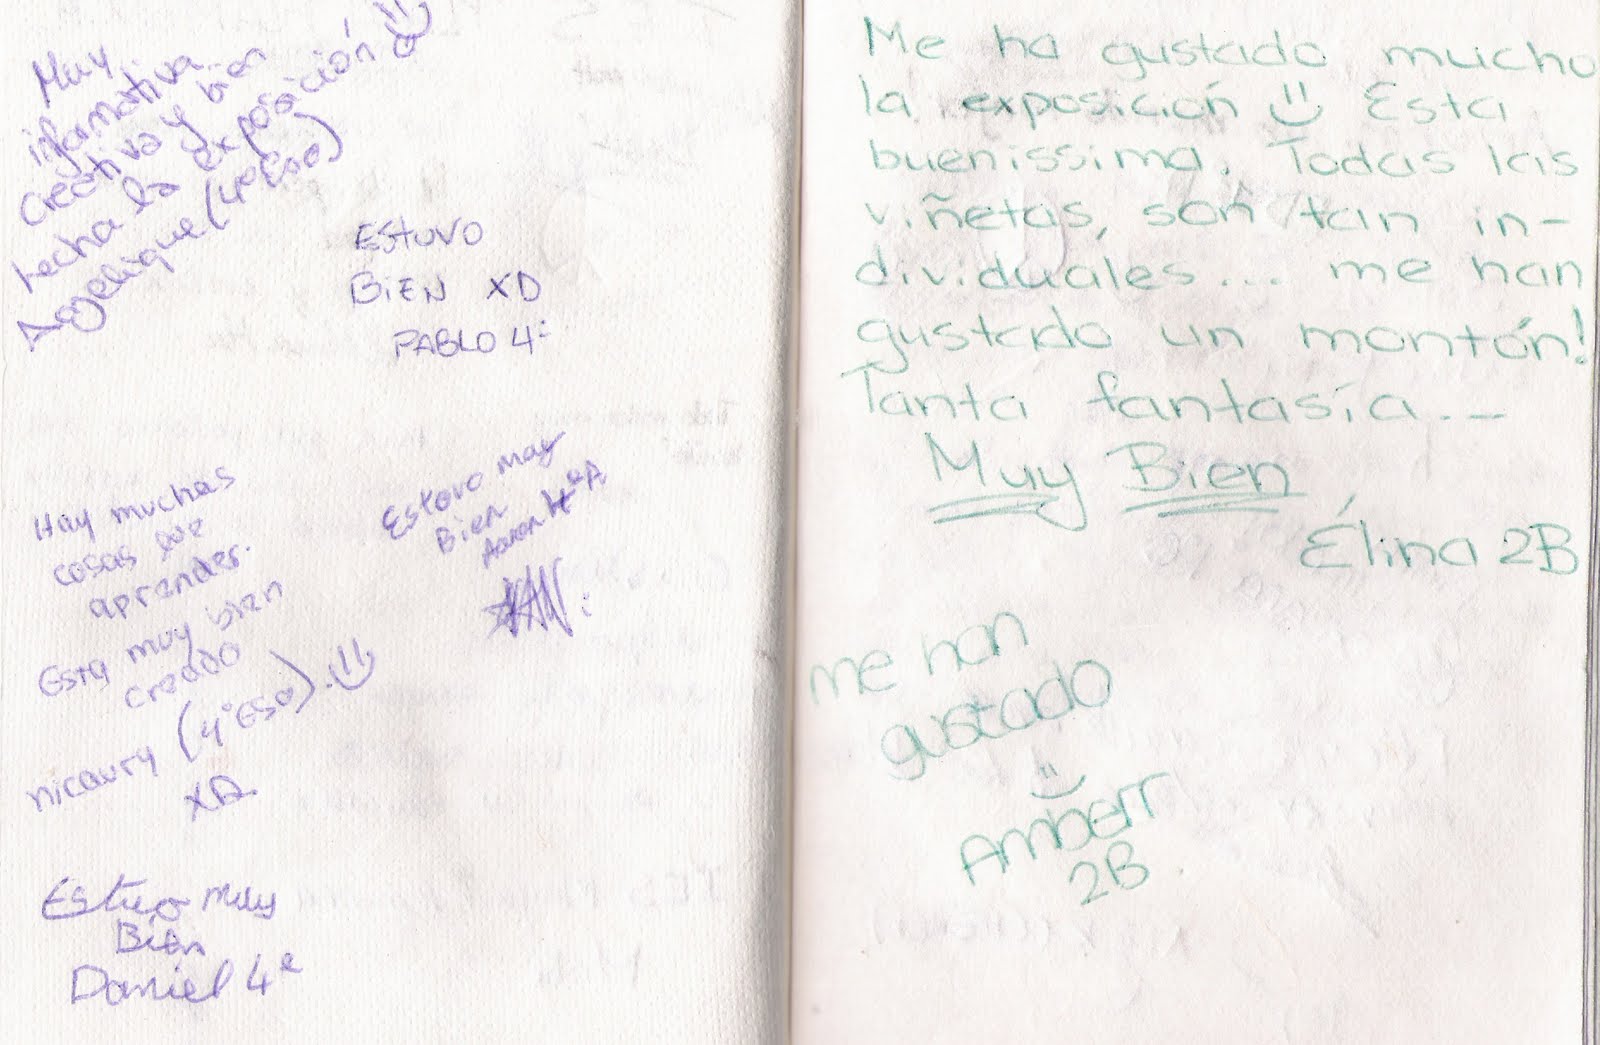 Muy
informativa
creativa y bien
hecha la exposición
Angelique (4ºESO)
ESTUVO
BIEN XD
PABLO 4º
Hay muchas
cosas que
aprender.
Esta muy bien
creado
nicaury (4ºESO).
XD
Estuvo muy
Bien
Aaron 4ºA
Estuvo muy
Bien
Daniel 4º
Me ha gustado mucho
la exposición Esta
buenissima. Todas las
viñetas, son tan in-
dividuales... me han
gustado un montón!
Tanta fantasía...
Muy Bien
Élina 2B
me han
gustado
AmbErr
2B